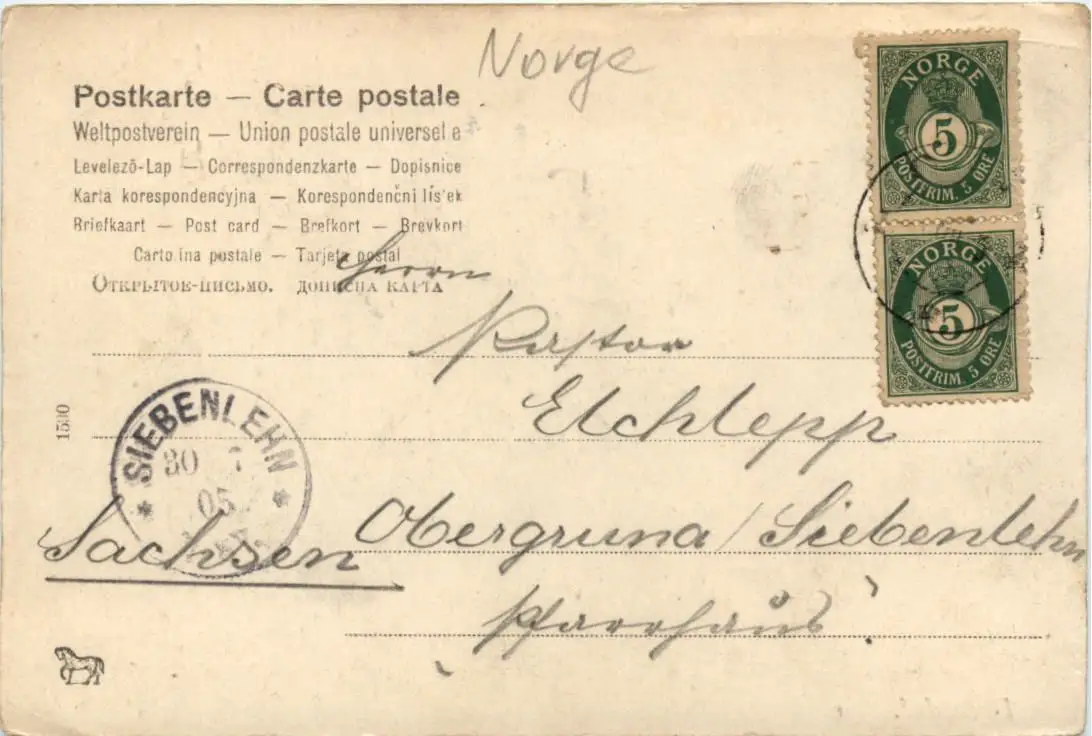 Norge
Postkarte — Carte postale
Weltpostverein — Union postale universel e
Levelező-Lap — Correspondenzkarte — Dopisnice
Karta korespondencyjna — Korespondenčni lis'ek
Briefkaart — Post card — Brefkort — Brevkort
Carto ina postale — Tarjeta postal
Открытое-письмо. дописна карта
NORGE
5
POSTFRIM. 5 ØRE
NORGE
5
POSTFRIM. 5 ØRE
Herrn
Pastor
Elchlepp
1530
* SIEBENLEHN *
30 7
05
Obergruna / Siebenlehn
Sachsen
Pfarrhaus